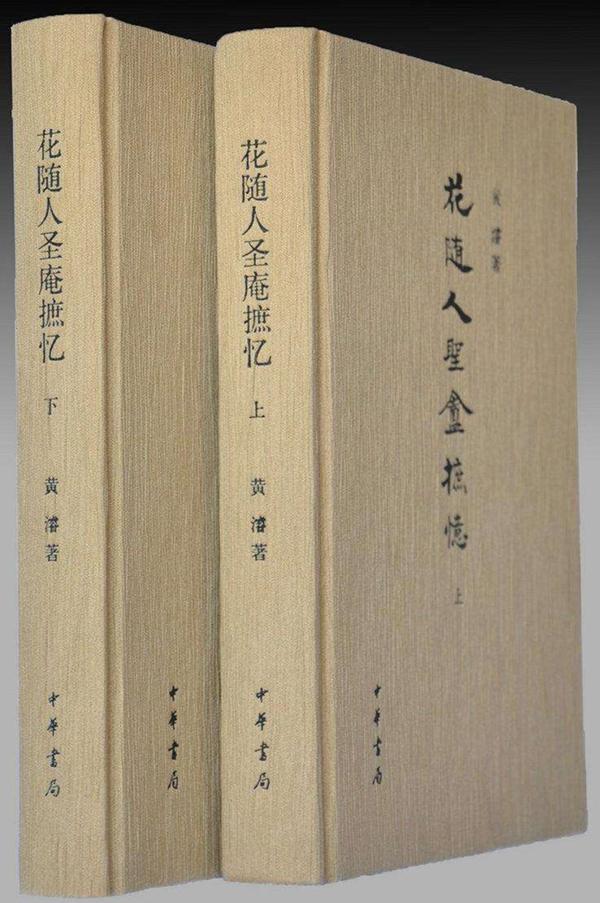 花随人圣庵摭忆
下
黄濬著
中华书局
中華書局
花随人圣庵摭忆
上
黄濬著
中華書局
黄濬著
花随人聖盦摭憶
上
中華書局